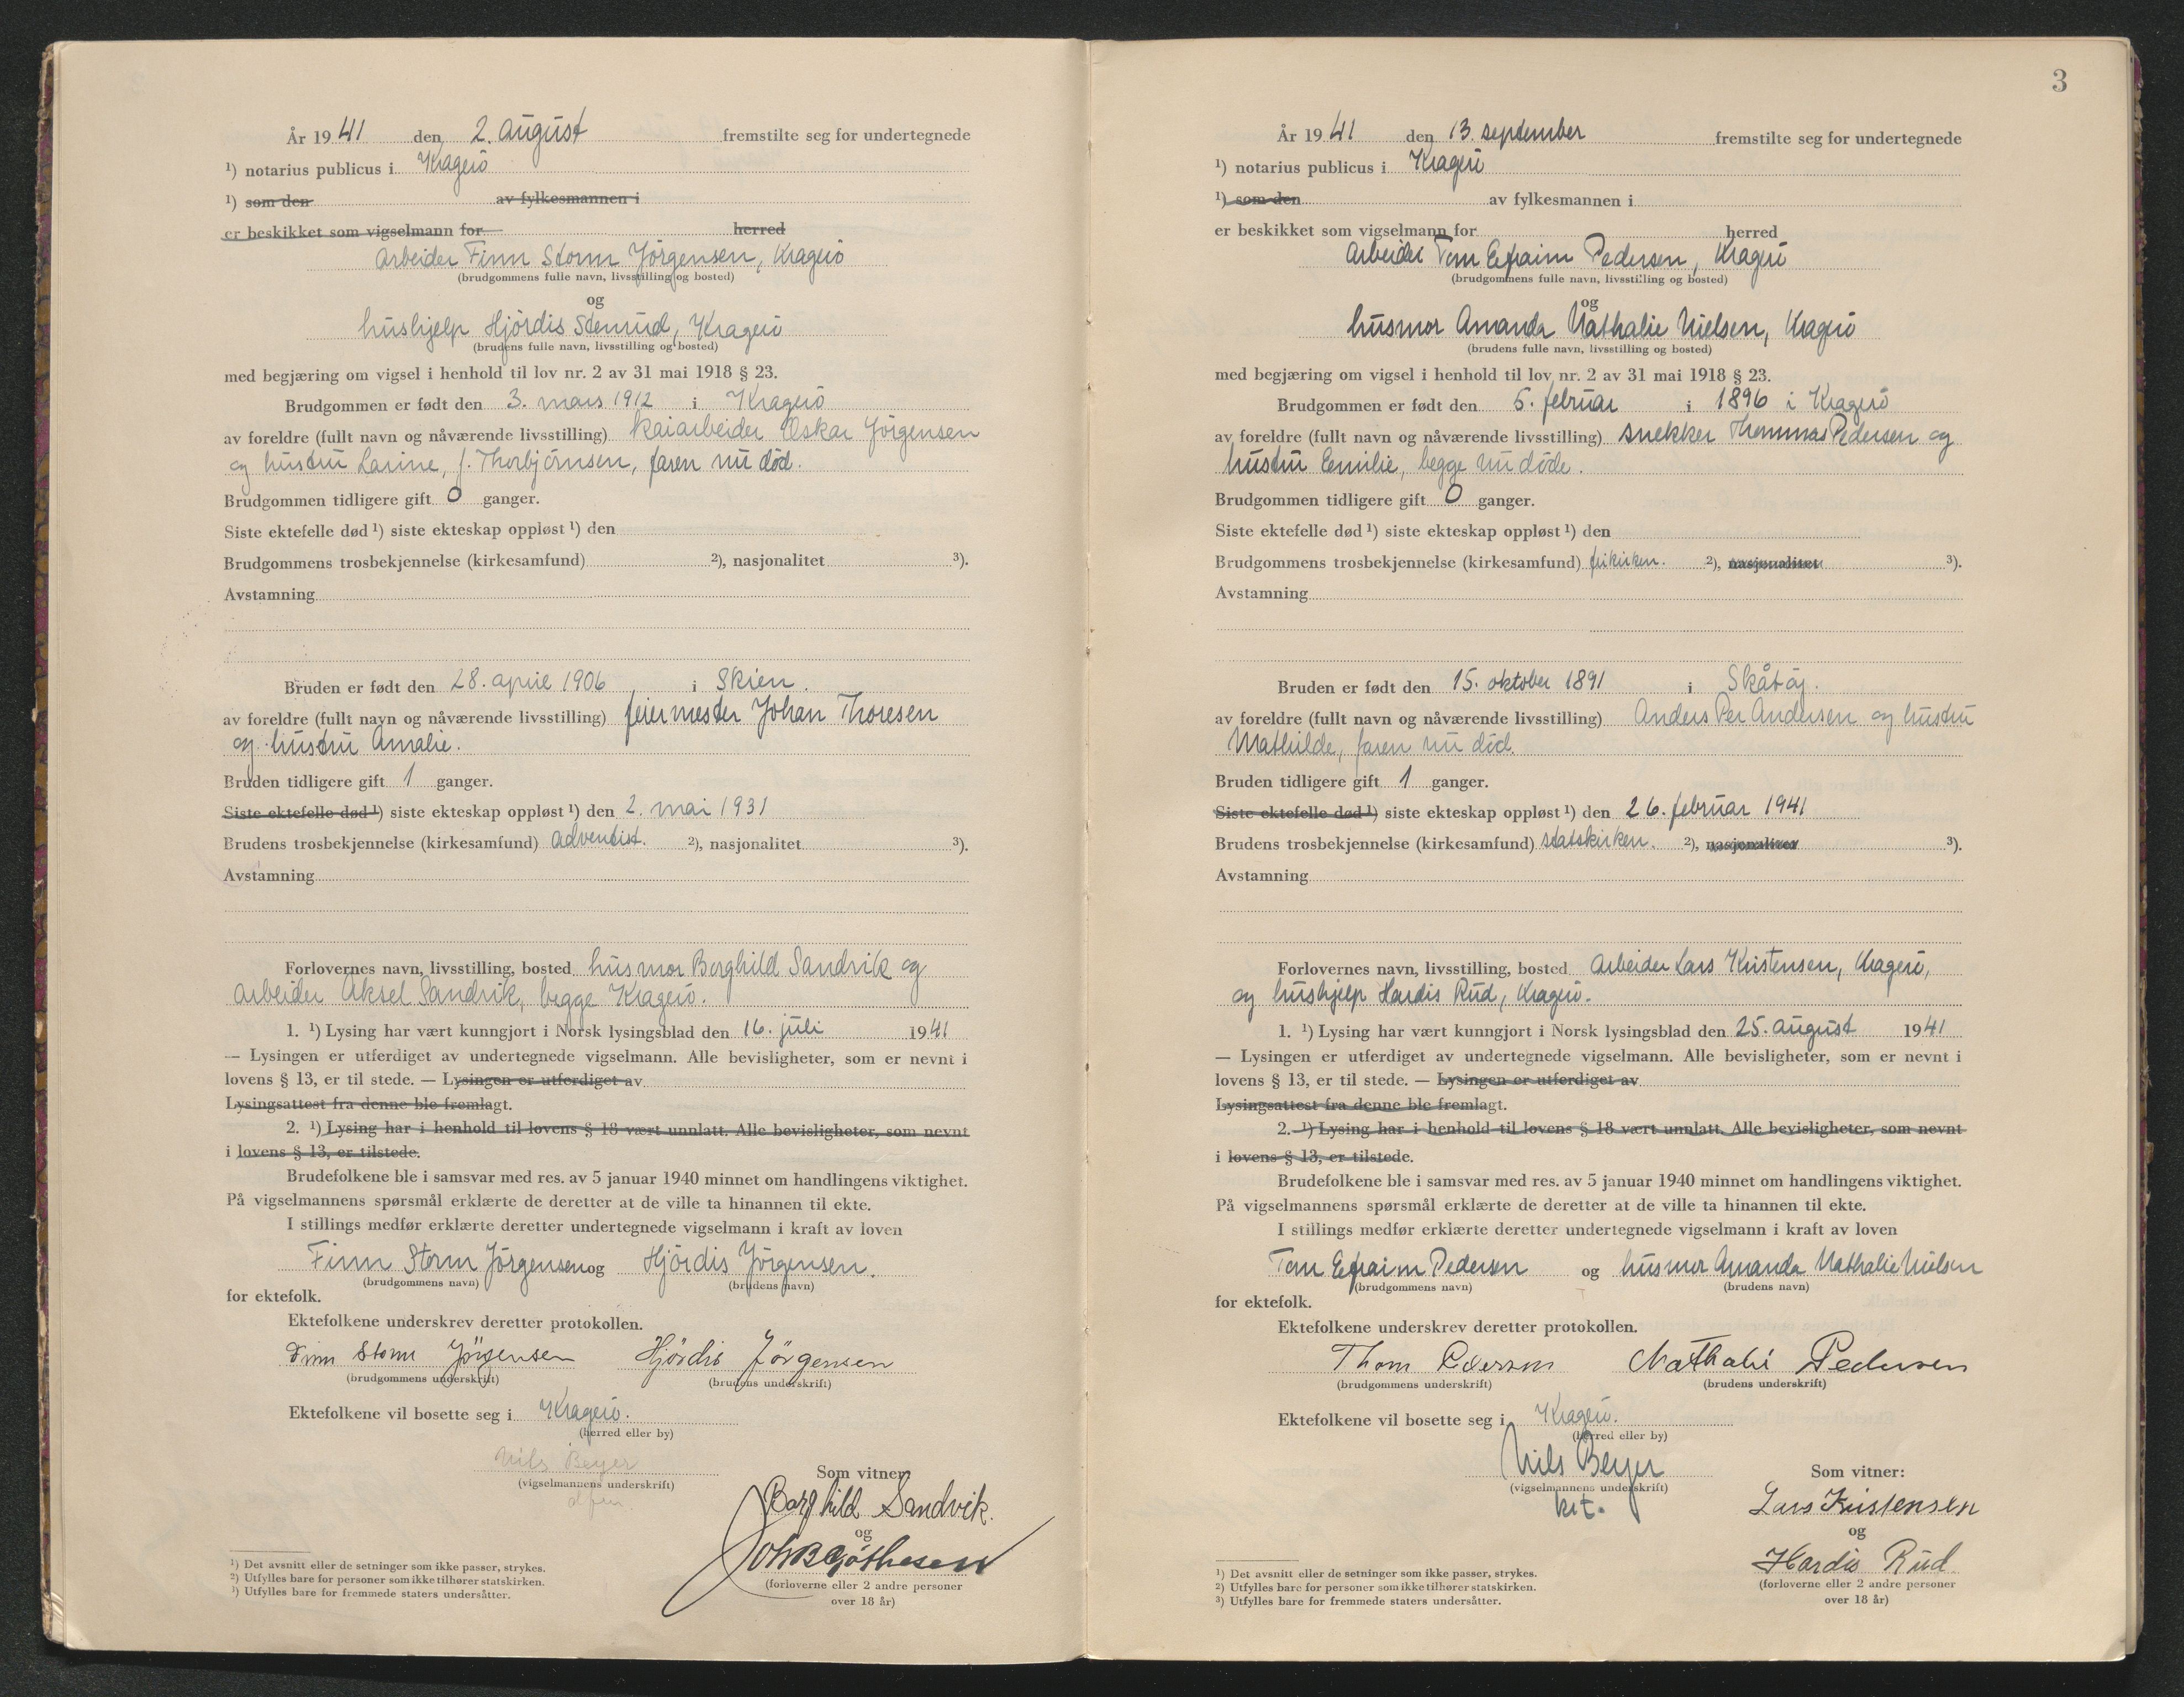 År 1941 den 2. august fremstilte seg for undertegnede
¹) notarius publicus i Kragerö
¹) som den av fylkesmannen i
er beskikket som vigselmann for herred
Arbeider Finn Storm Jörgensen, Kragerö
(brudgommens fulle navn, livsstilling og bosted)
og
hushjelp Hjördis Stenrud, Kragerö
(brudens fulle navn, livsstilling og bosted)
med begjæring om vigsel i henhold til lov nr. 2 av 31 mai 1918 § 23.
Brudgommen er født den 3. mars 1912 i Kragerö
av foreldre (fullt navn og nåværende livsstilling) kaiarbeider Oskar Jörgensen
og hustru Larine, f. Thorbjörnsen, faren nu död.
Brudgommen tidligere gift 0 ganger.
Siste ektefelle død ¹) siste ekteskap oppløst ¹) den
Brudgommens trosbekjennelse (kirkesamfund) ²), nasjonalitet ³).
Avstamning
Bruden er født den 28. april 1906 i Skien.
av foreldre (fullt navn og nåværende livsstilling) feiermester Johan Thoresen
og hustru Amalie.
Bruden tidligere gift 1 ganger.
Siste ektefelle død ¹) siste ekteskap oppløst ¹) den 2. mai 1931
Brudens trosbekjennelse (kirkesamfund) adventist. ²), nasjonalitet ³).
Avstamning
Forlovernes navn, livsstilling, bosted husmor Borghild Sandvik og
arbeider Aksel Sandvik, begge Kragerö.
1. ¹) Lysing har vært kunngjort i Norsk lysingsblad den 16. juli 1941
— Lysingen er utferdiget av undertegnede vigselmann. Alle bevisligheter, som er nevnt i
lovens § 13, er til stede. — Lysingen er utferdiget av
Lysingsattest fra denne ble fremlagt.
2. ¹) Lysing har i henhold til lovens § 18 vært unnlatt. Alle bevisligheter, som nevnt
i lovens § 13, er tilstede.
Brudefolkene ble i samsvar med res. av 5 januar 1940 minnet om handlingens viktighet.
På vigselmannens spørsmål erklærte de deretter at de ville ta hinannen til ekte.
I stillings medfør erklærte deretter undertegnede vigselmann i kraft av loven
Finn Storm Jörgensen og Hjördis Jörgensen.
(brudgommens navn) (brudens navn)
for ektefolk.
Ektefolkene underskrev deretter protokollen.
Finn Storm Jörgensen Hjördis Jörgensen
(brudgommens underskrift) (brudens underskrift)
Ektefolkene vil bosette seg i Kragerö.
(herred eller by)
Nils Beyer
(vigselmannens underskrift)
Som vitner
Borghild Sandvik.
og
(forloverne eller 2 andre personer
over 18 år)
¹) Det avsnitt eller de setninger som ikke passer, strykes.
²) Utfylles bare for personer som ikke tilhører statskirken.
³) Utfylles bare for fremmede staters undersåtter.
3
År 1941 den 13. september fremstilte seg for undertegnede
¹) notarius publicus i Kragerö
¹) som den av fylkesmannen i
er beskikket som vigselmann for herred
Arbeider Tom Efraim Pedersen, Kragerö
(brudgommens fulle navn, livsstilling og bosted)
og
husmor Amanda Nathalie Nielsen, Kragerö
(brudens fulle navn, livsstilling og bosted)
med begjæring om vigsel i henhold til lov nr. 2 av 31 mai 1918 § 23.
Brudgommen er født den 5. februar i 1896 i Kragerö
av foreldre (fullt navn og nåværende livsstilling) snekker Thommas Pedersen og
hustru Emilie, begge nu döde.
Brudgommen tidligere gift 0 ganger.
Siste ektefelle død ¹) siste ekteskap oppløst ¹) den
Brudgommens trosbekjennelse (kirkesamfund) frikirken. ²), nasjonalitet ³).
Avstamning
Bruden er født den 15. oktober 1891 i Skåtöy.
av foreldre (fullt navn og nåværende livsstilling) Anders Per Andersen og hustru
Mathilde, faren nu död.
Bruden tidligere gift 1 ganger.
Siste ektefelle død ¹) siste ekteskap oppløst ¹) den 26. februar 1941
Brudens trosbekjennelse (kirkesamfund) statskirken. ²), nasjonalitet ³).
Avstamning
Forlovernes navn, livsstilling, bosted Arbeider Lars Kristensen, Kragerö,
og hushjelp Hardis Rud, Kragerö.
1. ¹) Lysing har vært kunngjort i Norsk lysingsblad den 25. august 1941
— Lysingen er utferdiget av undertegnede vigselmann. Alle bevisligheter, som er nevnt i
lovens § 13, er til stede. — Lysingen er utferdiget av
Lysingsattest fra denne ble fremlagt.
2. ¹) Lysing har i henhold til lovens § 18 vært unnlatt. Alle bevisligheter, som nevnt
i lovens § 13, er tilstede.
Brudefolkene ble i samsvar med res. av 5 januar 1940 minnet om handlingens viktighet.
På vigselmannens spørsmål erklærte de deretter at de ville ta hinannen til ekte.
I stillings medfør erklærte deretter undertegnede vigselmann i kraft av loven
Tom Efraim Pedersen og husmor Amanda Nathalie Nielsen
(brudgommens navn) (brudens navn)
for ektefolk.
Ektefolkene underskrev deretter protokollen.
Thom Pedersen Nathalie Pedersen
(brudgommens underskrift) (brudens underskrift)
Ektefolkene vil bosette seg i Kragerö.
(herred eller by)
Nils Beyer
(vigselmannens underskrift)
kst.
Som vitner:
Lars Kristensen
og
Hardis Rud
(forloverne eller 2 andre personer
over 18 år)
¹) Det avsnitt eller de setninger som ikke passer, strykes.
²) Utfylles bare for personer som ikke tilhører statskirken.
³) Utfylles bare for fremmede staters undersåtter.